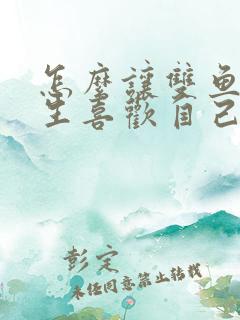 怎麼讓雙魚
生喜歡自己
彭定
未經同意禁止轉載